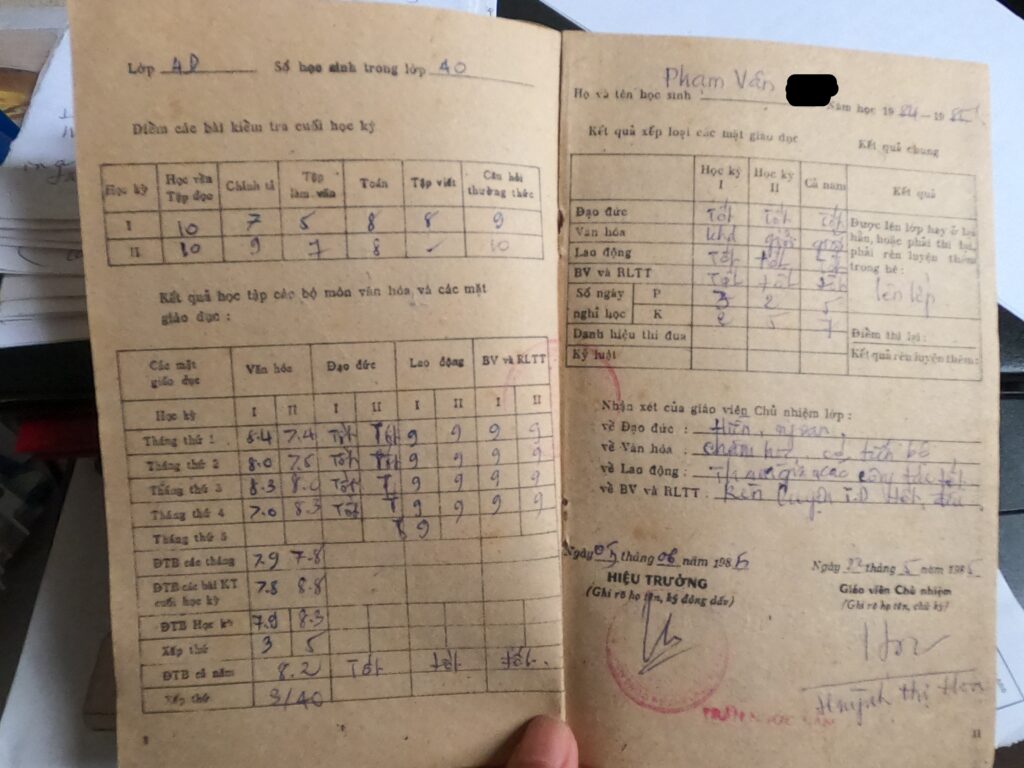 Lớp 4D Số học sinh trong lớp 40
Điểm các bài kiểm tra cuối học kỳ
Học kỳ | Học vần Tập đọc | Chính tả | Tập làm văn | Toán | Tập viết | Câu hỏi thường thức
I | 10 | 7 | 5 | 8 | 8 | 9
II | 10 | 9 | 7 | 8 | ✓ | 10
Kết quả học tập các bộ môn văn hóa và các mặt
giáo dục :
Các mặt giáo dục | Văn hóa | Đạo đức | Lao động | BV và RLTT
Học kỳ | I | II | I | II | I | II | I | II
Tháng thứ 1 | 8.4 | 7.4 | Tốt | Tốt | 9 | 9 | 9 | 9
Tháng thứ 2 | 8.0 | 7.5 | Tốt | Tốt | 9 | 9 | 9 | 9
Tháng thứ 3 | 8.3 | Tốt | T | 9 | 9 | 9 | 9
Tháng thứ 4 | 7.0 | 8.3 | Tốt | T | 9 | 9 | 9 | 9
Tháng thứ 5 | T | 9
ĐTB các tháng | 7.9 | 7.8
ĐTB các bài KT cuối học kỳ | 7.8 | 8.8
ĐTB Học kỳ | 7.9 | 8.3
Xếp thứ | 3 | 5
ĐTB cả năm | 8.2 | Tốt | tốt | tốt.
Xếp thứ | 3/40
Phạm Văn
Họ và tên học sinh Năm học 1984 – 1985
Kết quả xếp loại các mặt giáo dục Kết quả chung
Học kỳ I | Học kỳ II | Cả năm | Kết quả
Đạo đức | Tốt | Tốt | Tốt
Văn hóa | khá | giỏi | giỏi
Lao động | Tốt | tốt | Tốt
BV và RLTT | Tốt | tốt | tốt
Được lên lớp hay ở lại
hẳn, hoặc phải thi lại,
phải rèn luyện thêm
trong hè :
lên lớp
Số ngày nghỉ học | P | 3 | 2 | 5
K | 2 | 5 | 7
Danh hiệu thi đua | Điểm thi lại :
Kỷ luật | Kết quả rèn luyện thêm :
Nhận xét của giáo viên Chủ nhiệm lớp :
về Đạo đức : Hiền, ngoan,
về Văn hóa : chăm học, có tiến bộ
về Lao động : công tác tốt
về BV và RLTT :
Ngày 05 tháng 06 năm 1985
HIỆU TRƯỞNG
(Ghi rõ họ tên, ký đóng dấu)
Ngày 22 tháng 5 năm 1985
Giáo viên Chủ nhiệm
(Ghi rõ họ tên, chữ ký)
Huỳnh Thị Hoa